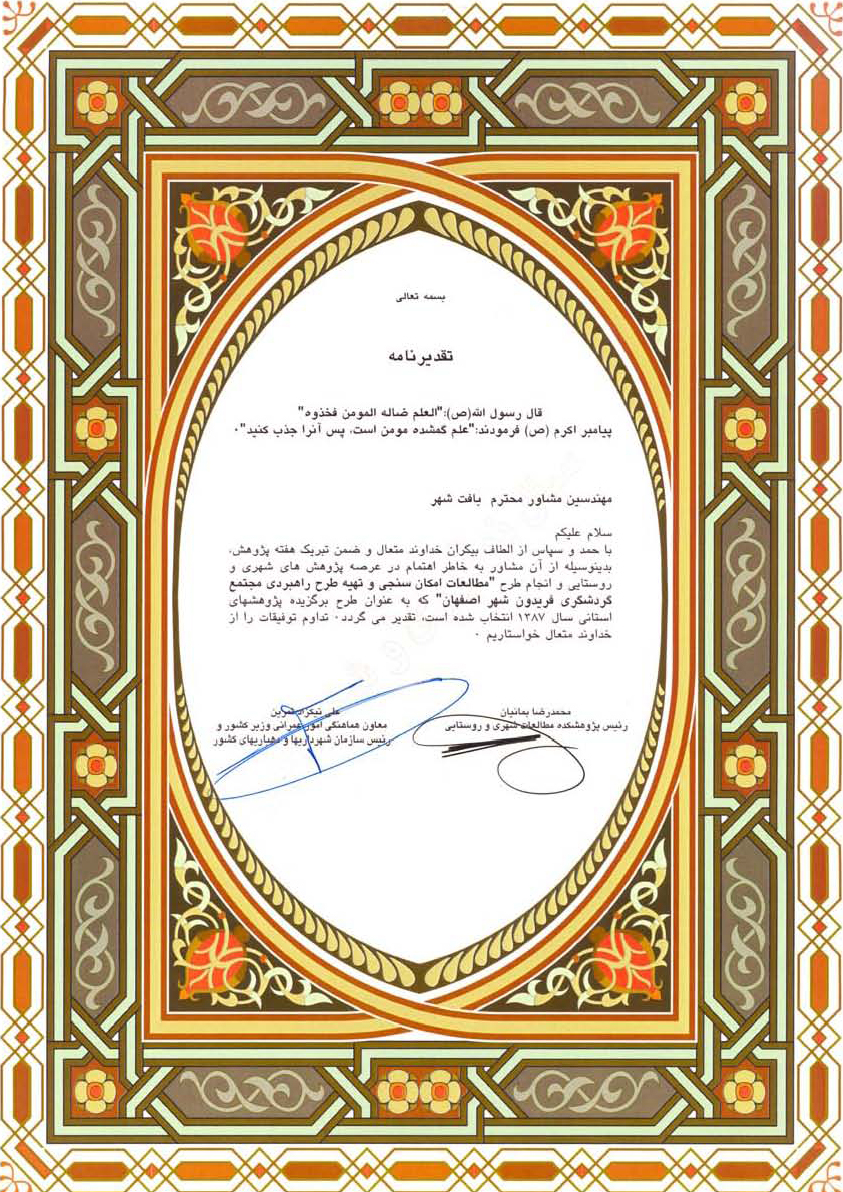 بسمه تعالی
تقدیرنامه
قال رسول الله(ص):"العلم ضاله المومن فخذوه"
پیامبر اکرم (ص) فرمودند:"علم گمشده مومن است، پس آنرا جذب کنید"۰
مهندسین مشاور محترم بافت شهر
سلام علیکم
با حمد و سپاس از الطاف بیکران خداوند متعال و ضمن تبریک هفته پژوهش،
بدینوسیله از آن مشاور به خاطر اهتمام در عرصه پژوهش های شهری و
روستایی و انجام طرح "مطالعات امکان سنجی و تهیه طرح راهبردی مجتمع
گردشگری فریدون شهر اصفهان" که به عنوان طرح برگزیده پژوهشهای
استانی سال ۱۳۸۷ انتخاب شده است، تقدیر می گردد۰ تداوم توفیقات را از
خداوند متعال خواستاریم ۰
محمدرضا بمانیان
رئیس پژوهشکده مطالعات شهری و روستایی
علی
معاون هماهنگی امور عمرانی وزیر کشور و
رئیس سازمان شهرداریها و دهیاریهای کشور